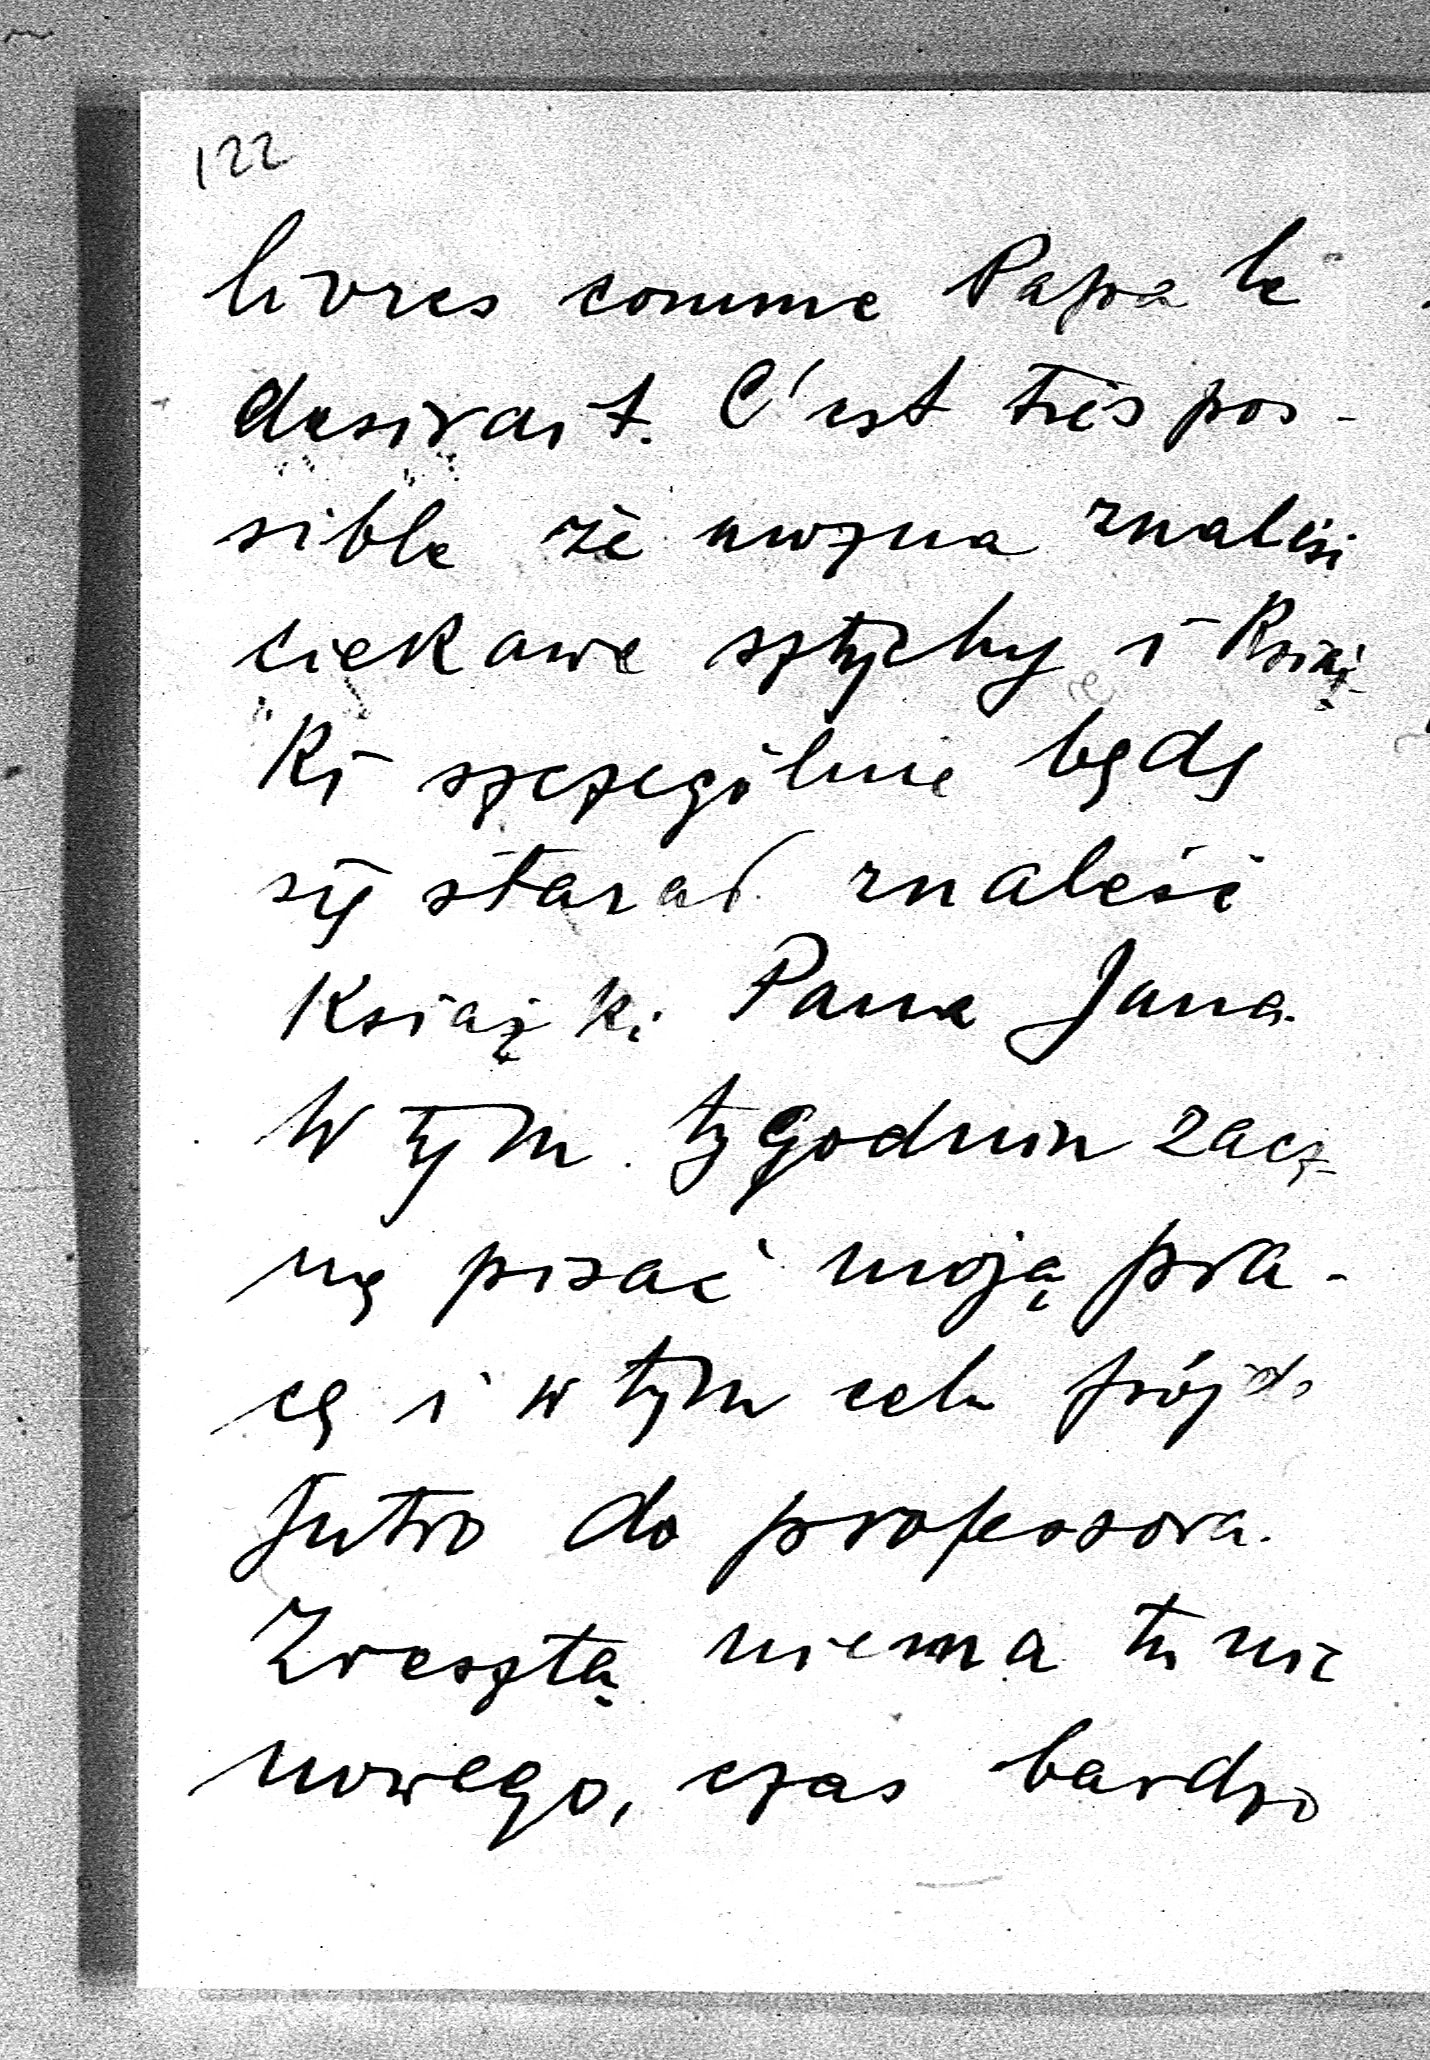 122
livres comme Papa le
desirait. C'est très pos-
sible że można znaleśc
ciekawe sztychy i Książ-
ki szczególnie będę
się starać znaleść
Książki Pana Jana.
W tym tygodniu zacz-
nę pisać moją pra-
cę i w tym celu pójdę
Jutro do professora.
Zresztą niema tu nic
nowego, czas bardzo